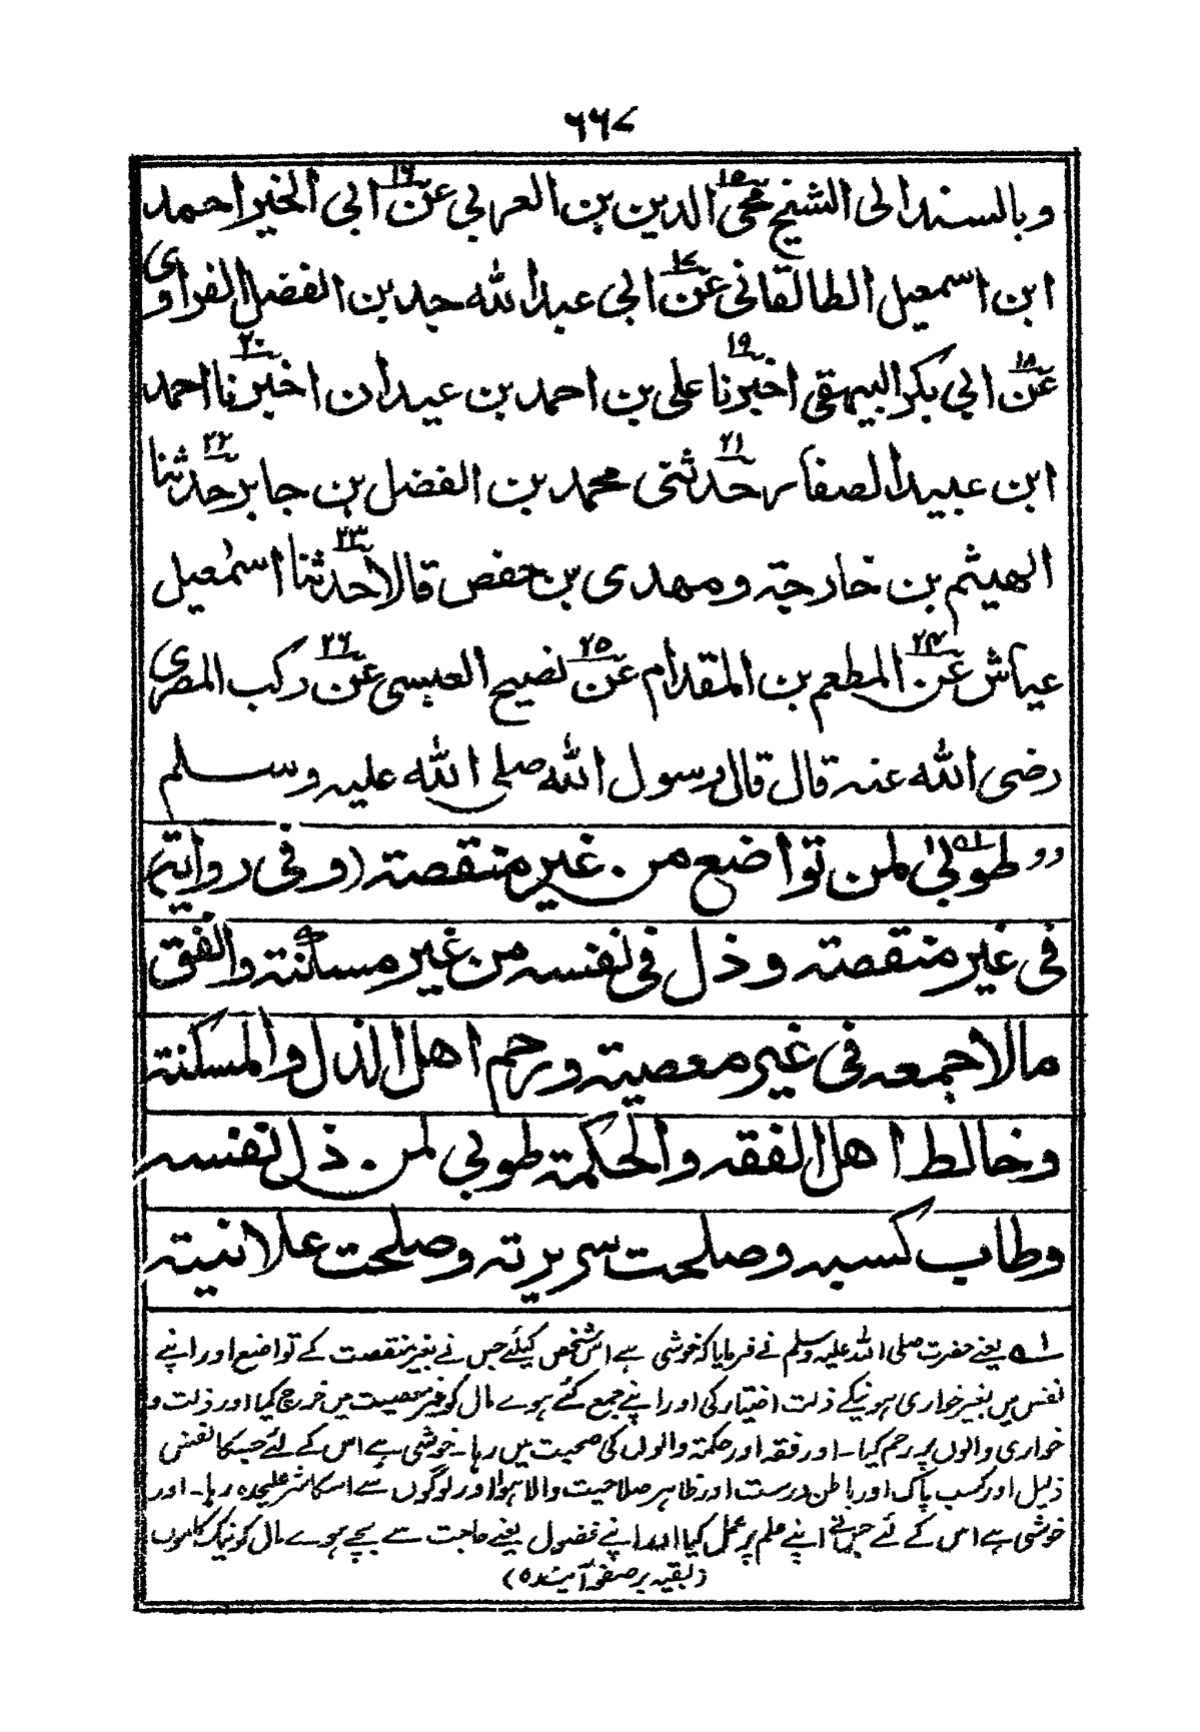 ۶۶۷
وبالسند الى الشيخ محى۱۵ الدين بن العربي عن۱۶ ابى الخير احمد
ابن اسمعيل الطالقانى عن۱۷ ابى عبد الله حمد بن الفضل الفراوى
عن۱۸ ابى بكر البيهقى اخبرنا۱۹ على بن احمد بن عبدان اخبرنا۲۰ احمد
ابن عبيد الصفار حدثنى۲۱ محمد بن الفضل بن جابر حدثنا۲۲
الهيثم بن خارجة ومهدى بن حفص قالا حدثنا۲۳ اسمٰعيل
عياش عن۲۴ المطعم بن المقدام عن۲۵ نصيح العبسى عن۲۶ ركب المصرى
رضى الله عنه قال قال رسول الله صلى الله عليه وسلم
,, طوبىٰ۱ه لمن تواضع من غير منقصة (وفى رواية
فى غير منقصة وذل فى نفسه من غير مسكنة وانفق
مالا جمعه فى غير معصية ورحم اهل الذل والمسكنة
وخالط اهل الفقه والحكمة طوبى لمن ذل نفسه
وطاب كسبه وصلحت سريرته وصلحت علانيته
۱ه یعنے حضرت صلی اللہ علیہ وسلم نے فرمایا کہ خوشی ہے اس شخص کیلئے جس نے بغیر منقصت کے تواضع اور اپنے
نفس میں بغیر خواری ہونیکے ذلت اختیار کی اور اپنے جمع کئے ہوے مال کو غیر معصیت میں خرچ کیا اور ذلت و
خواری والوں پر رحم کیا۔ اور فقہ اور حکمۃ والوں کی صحبت میں رہا۔ خوشی ہے اس کے لئے جسکا نفس
ذلیل اور کسب پاک اور باطن درست اور ظاہر صلاحیت والا ہوا اور لوگوں سے اسکا شر علیحدہ رہا۔ اور
خوشی ہے اس کے لئے جس نے اپنے علم پر عمل کیا اور اپنے فضول یعنے حاجت سے بچے ہوے مال کو نیک کاموں
(بقیہ بر صفحہ آیندہ)